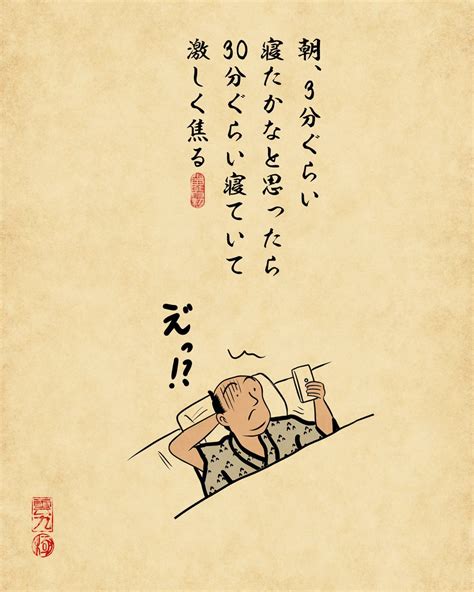 朝、3分ぐらい
寝たかなと思ったら
30分ぐらい寝ていて
激しく焦る
えっ!?